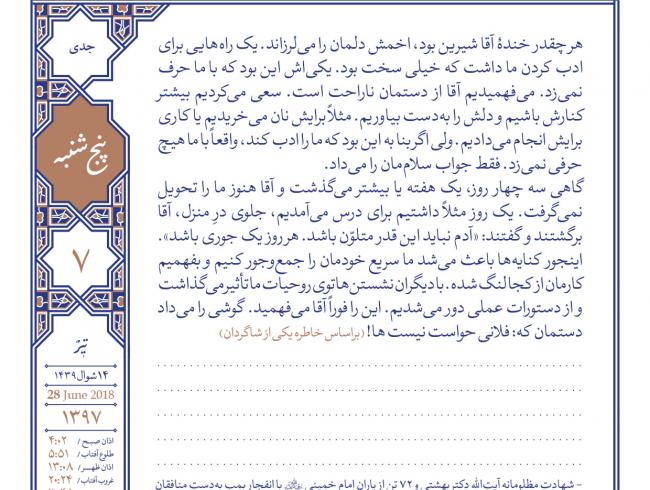 هر چقدر خندهٔ آقا شیرین بود، اخمش دلمان را می‌لرزاند. یک راه‌هایی برای
ادب کردن ما داشت که خیلی سخت بود. یکی‌اش این بود که با ما حرف
نمی‌زد. می‌فهمیدیم آقا از دستمان ناراحت است. سعی می‌کردیم بیشتر
کنارش باشیم و دلش را به‌دست بیاوریم. مثلاً برایش نان می‌خریدیم یا کاری
برایش انجام می‌دادیم. ولی اگر بنا به این بود که ما را ادب کند، واقعاً با ما هیچ
حرفی نمی‌زد. فقط جواب سلام‌مان را می‌داد.
گاهی سه چهار روز، یک هفته یا بیشتر می‌گذشت و آقا هنوز ما را تحویل
نمی‌گرفت. یک روز مثلاً داشتیم برای درس می‌آمدیم، جلوی درِ منزل، آقا
برگشتند و گفتند: «آدم نباید این قدر متلوّن باشد. هر روز یک جوری باشد».
اینجور کنایه‌ها باعث می‌شد ما سریع خودمان را جمع‌وجور کنیم و بفهمیم
کارمان از کجا لنگ شده. با دیگران نشستن‌ها توی روحیات ما تأثیر می‌گذاشت
و از دستورات عملی دور می‌شدیم. این را فوراً آقا می‌فهمید. گوشی را می‌داد
دستمان که: فلانی حواست نیست ها! (براساس خاطره یکی از شاگردان)
- شهادت مظلومانه آیت‌الله دکتر بهشتی و ۷۲ تن از یاران امام خمینی با انفجار بمب به‌دست منافقان
جدی
پنج شنبه
۷
تیر
۱۴ شوال ۱۴۳۹
28 June 2018
۱۳۹۷
اذان صبح / ۴:۰۲
طلوع آفتاب / ۵:۵۱
اذان ظهر / ۱۳:۰۸
غروب آفتاب / ۲۰:۲۴